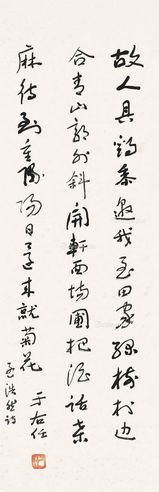 故人具鸡黍邀我至田家绿树村边
合青山郭外斜开轩面场圃把酒话桑
麻待到重阳日还来就菊花 于右任
孟浩然诗